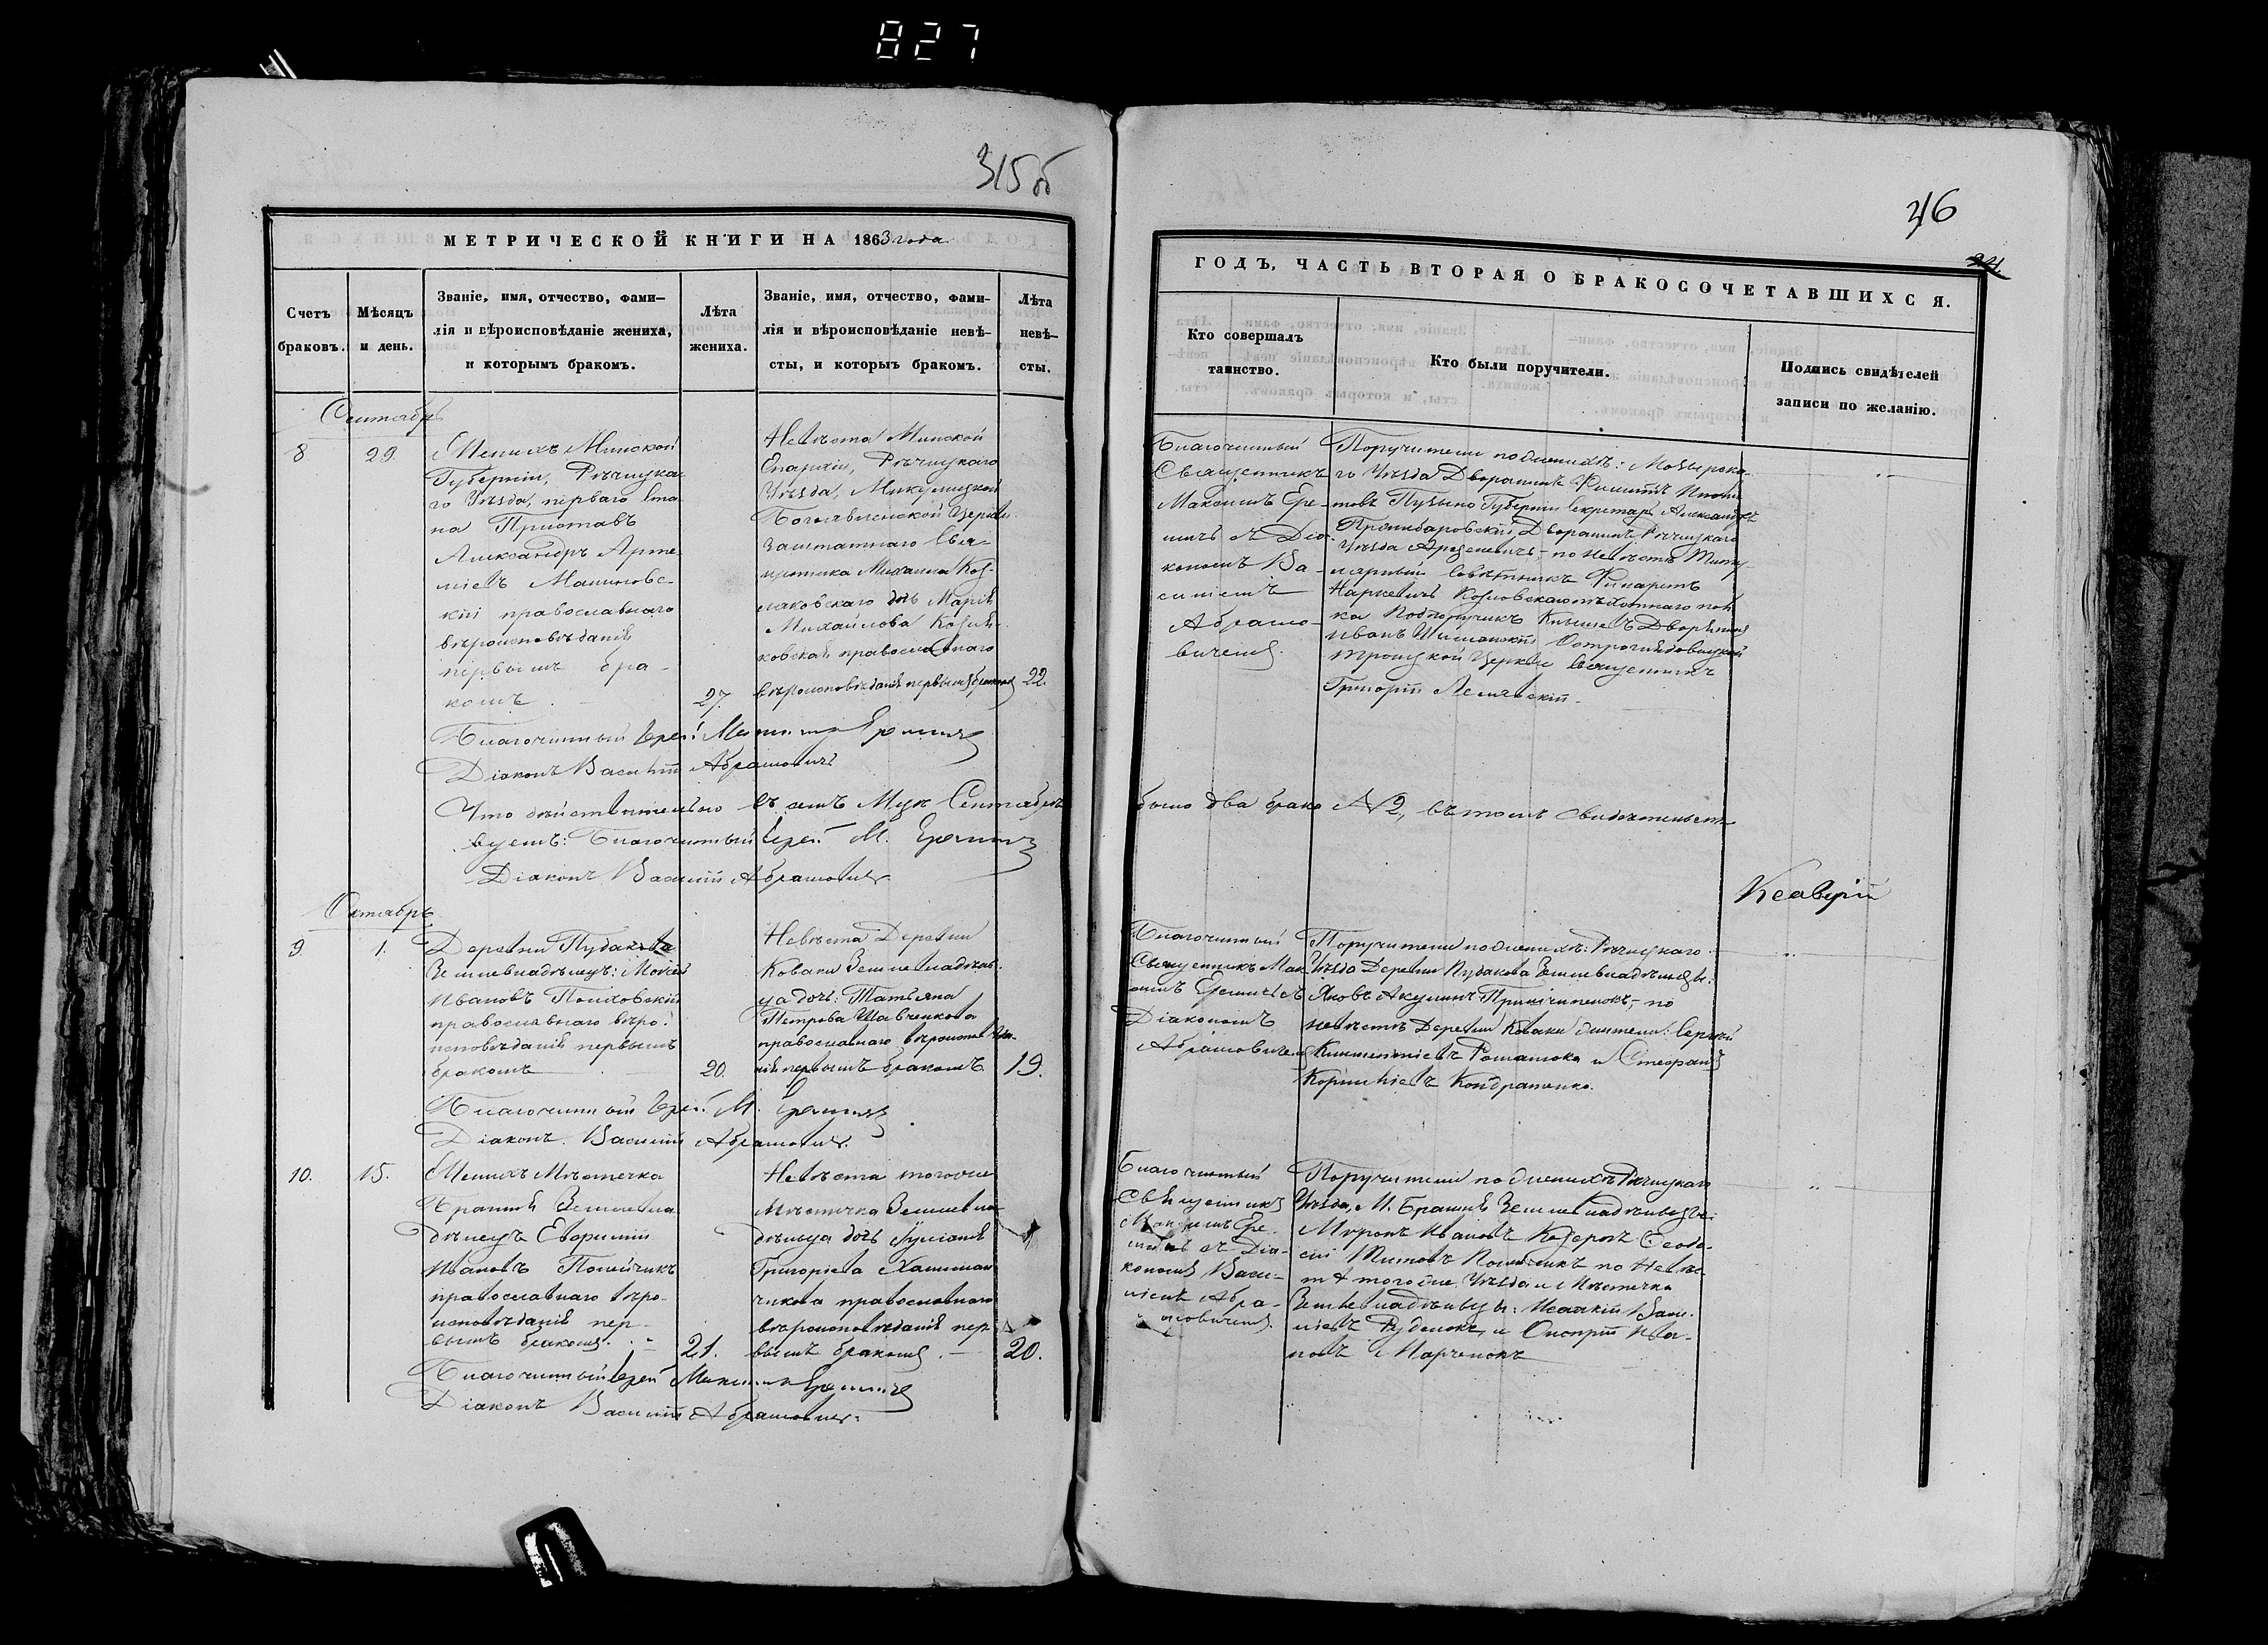 827
315 об
МЕТРИЧЕСКОЙ КНИГИ НА 1863 года
Счетъ браковъ.
Мѣсяцъ и день.
Званіе, имя, отчество, фами-
лія и вѣроисповѣданіе жениха,
и которымъ бракомъ.
Лѣта жениха.
Званіе, имя, отчество, фами-
лія и вѣроисповѣданіе невѣ-
сты, и которыъ бракомъ.
Лѣта невѣ-
сты.
Сентябрь
8
29
Женихъ Минской
Губерніи, Рѣчицка
го Уѣзда, перваго ста
на Приставъ
Александръ Арте
міевъ Малиновс-
кій православнаго
вѣроисповѣданія
первымъ бра-
комъ
27.
Невѣста Минской
Епархіи, Рѣчицкаго
Уѣзда, Микулицкой
Богоявленской Церкви
Заштатнаго Свя-
щенника Михаила Коз-
ляковскаго дочь Марія
Михайлова Козля-
ковская православнаго
вѣроисповѣданія первымъ бракомъ
22.
Благочинный Іерей Максимъ Еремичъ
Діаконъ Василій Абрамовичъ
Что дѣйствительно въ семъ Мцѣ Сентябрѣ
вуемъ: Благочинный Іерей М. Еремичъ
Діаконъ Василій Абрамовичъ
Октябрь
9
1.
Деревни Пудакова
Землевладѣлецъ: Моисей
Ивановъ Полховскій
православнаго вѣро-
исповѣданія первымъ
бракомъ
20.
Невѣста Деревни
Коваки Землевладѣль
ца дочь: Татьяна
Петрова Шавченкова
православнаго вѣроисповѣда-
нія первымъ бракомъ
19.
Благочинный Іерей М. Еремичъ
Діаконъ Василій Абрамовичъ.
10.
15.
Женихъ Мѣстечка
Брагиня Землевла
дѣлецъ Евфимій
Ивановъ Попейчикъ
православнаго вѣро-
исповѣданія пер-
вымъ бракомъ.
21.
Невѣста того же
Мѣстечка Землевла-
дѣльца дочь Іуліанія
Григорьева
чикова православнаго
вѣроисповѣданія пер
вымъ бракомъ.
20.
Благочинный Іерей Максимъ Еремичъ
Діаконъ Василій Абрамовичъ.
46
ГОДЪ, ЧАСТЬ ВТОРАЯ О БРАКОСОЧЕТАВШИХСЯ.
Кто совершалъ
таинство.
Кто были поручители.
Подпись свидѣтелей
записи по желанію.
Благочинный
Священникъ
Максимъ Ере-
мичъ съ Діа-
кономъ Ва-
силіемъ
Абрамо-
вичемъ.
Поручители по женихѣ: Мозырска-
го Уѣзда Дворянинъ Филиппъ
Пузыно Губерніи Секретарь Александръ
Дворянинъ Рѣчицкаго
Уѣзда по невѣстѣ Титу-
лярный Совѣтникъ
Козловскаго пѣхотнаго пол
ка Подпоручикъ Дворянинъ
Иванъ
Троицкой Церкви Священникъ
Григорій
было два брака № 2, въ томъ свидѣтельст-
Ксаверій
Благочинный
Священникъ Мак
симъ Еремичъ съ
Діакономъ
Абрамовичемъ
Поручители по женихѣ: Рѣчицкаго
Уѣзда Деревни Пудакова Землевладѣльцы:
Яковъ Акулинъ по
невѣстѣ Деревни Коваки жители: Сергѣй
Климентіевъ Ромашока и Стефанъ
Корниліевъ Кондратенко.
Благочинный
Священникъ
Максимъ Ере
мичъ съ Діа-
кономъ Васи-
ліемъ Абра-
мовичемъ.
Поручители по женихѣ Рѣчицкаго
Уѣзда, М. Брагиня Землевладѣльцы:
Миронъ Ивановъ Козеровъ Ѳеодо-
сій Титовъ по Невѣс-
тѣ того же Уѣзда и Мѣстечка
Землевладѣльцы: Исаакій Васи-
ліевъ Руденокъ, и Онофрій Ива-
новъ Марченокъ